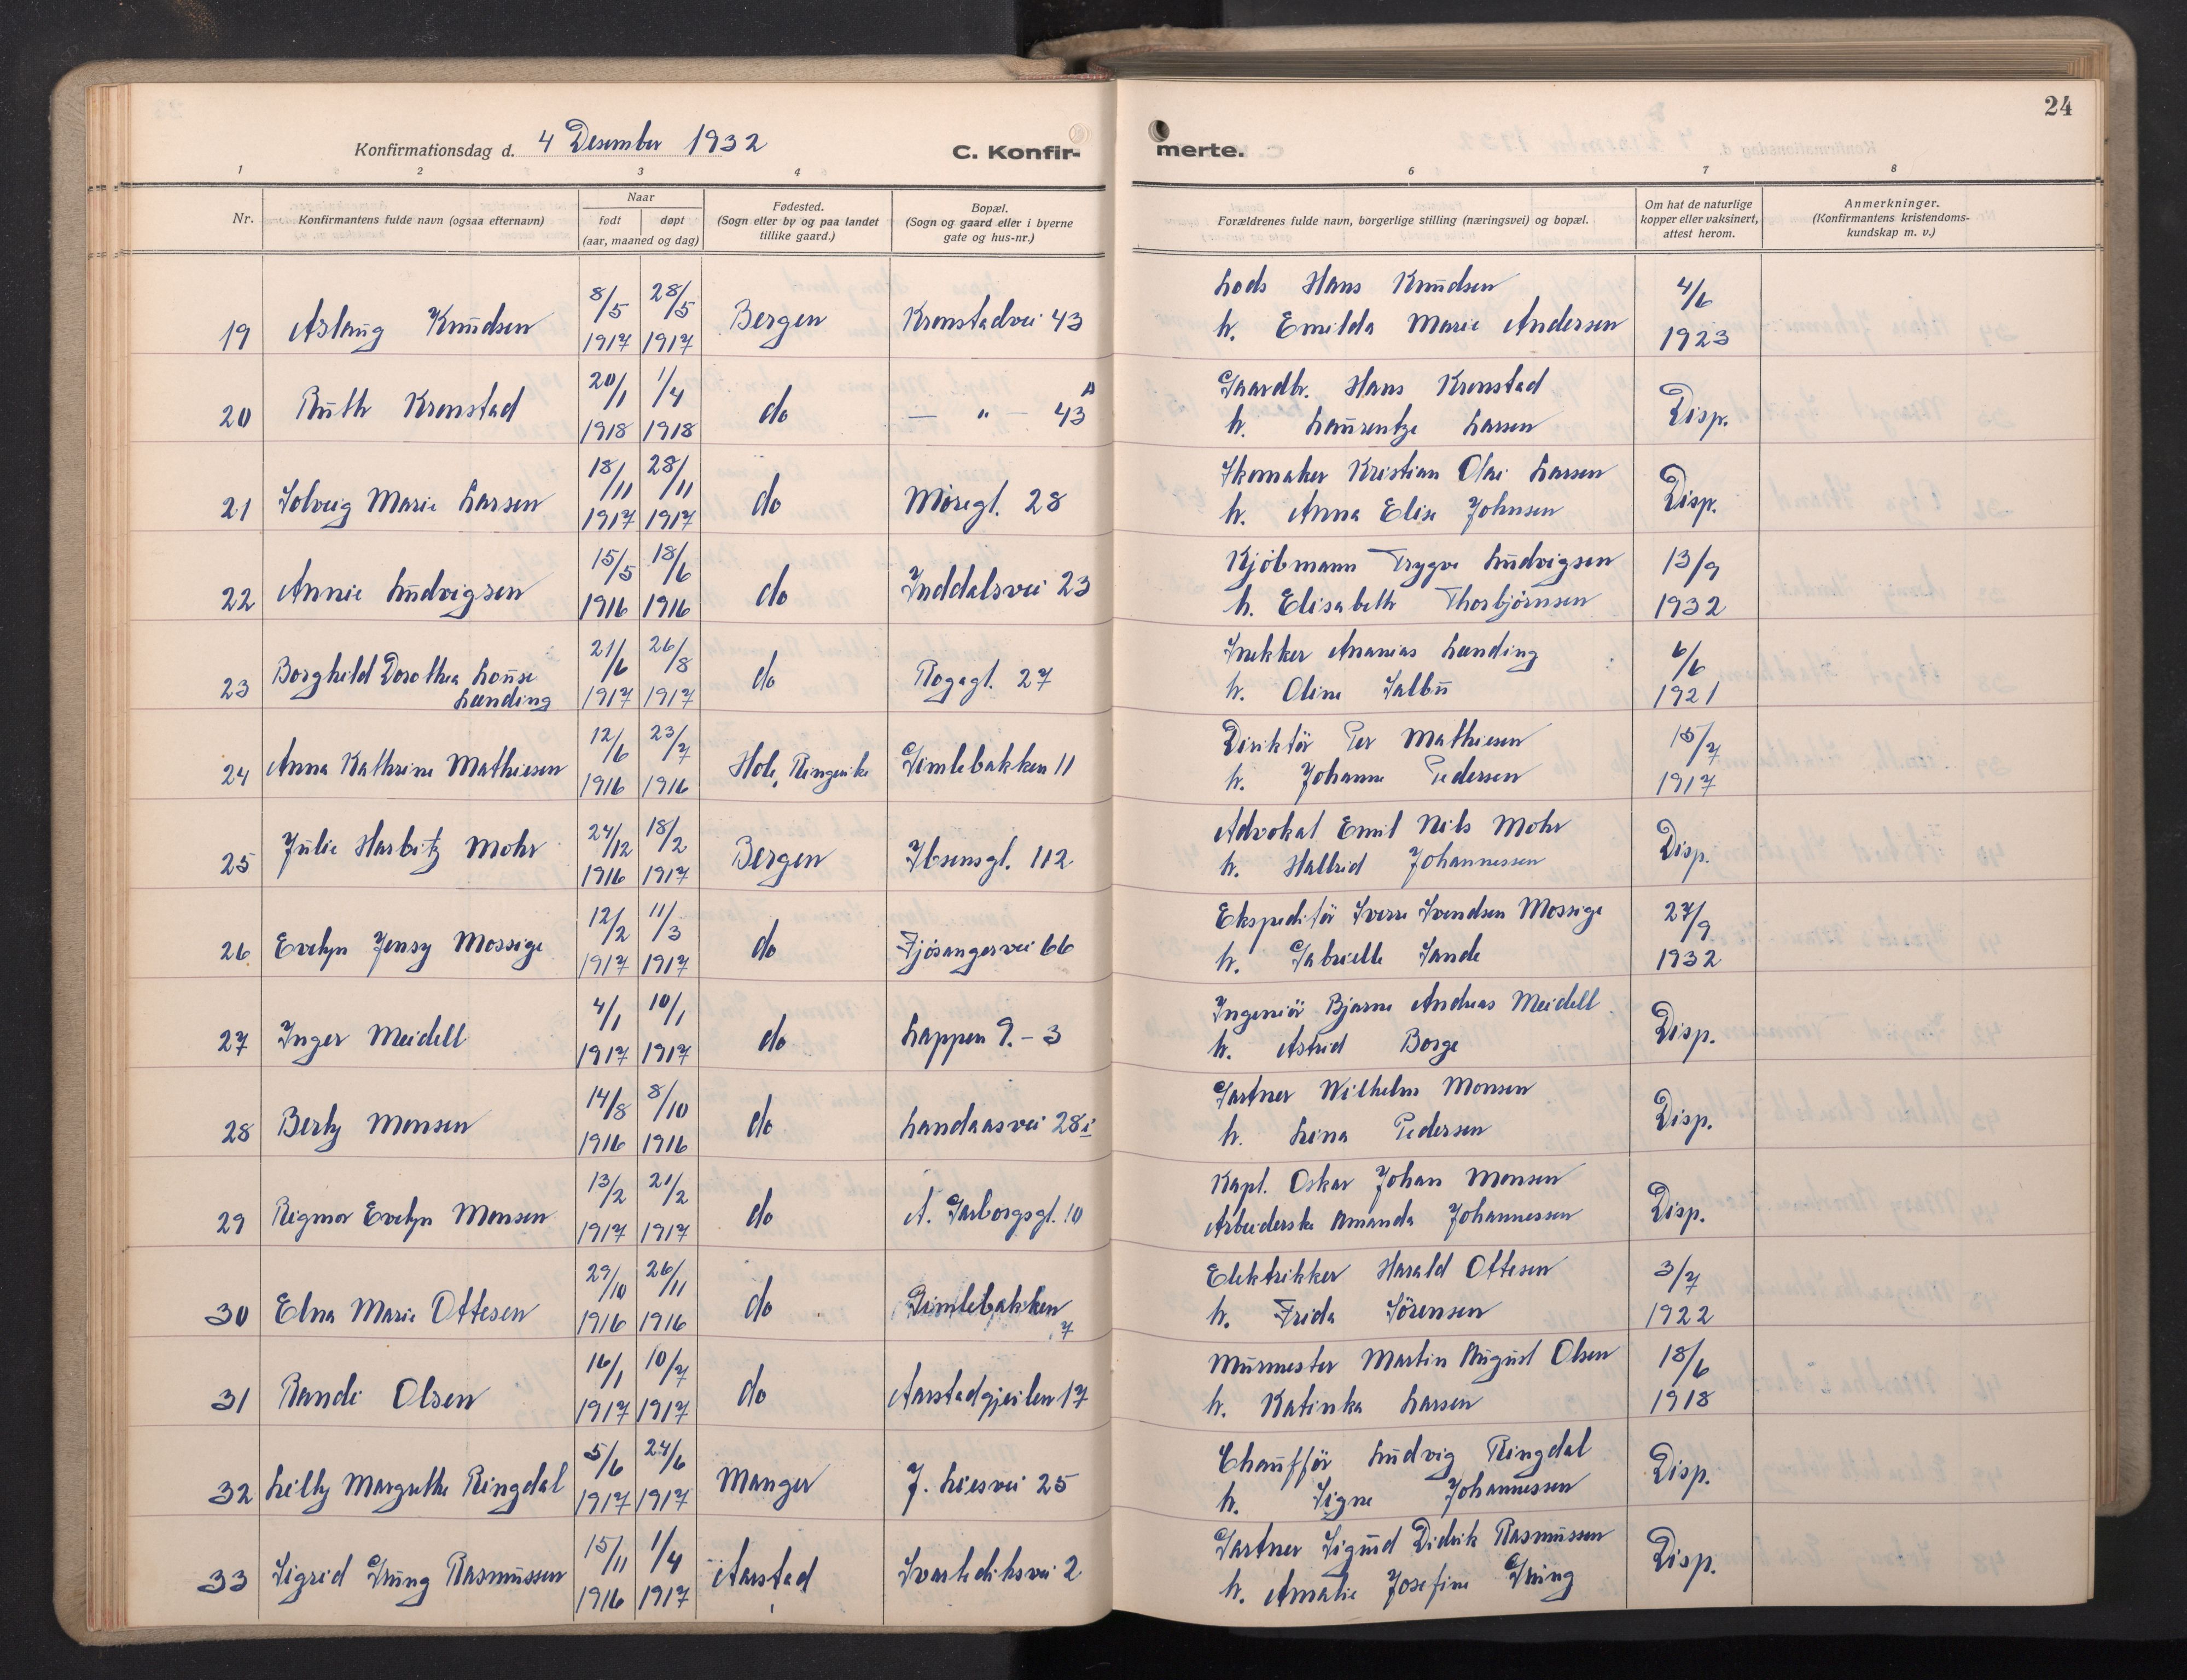 24
Konfirmationsdag d. 4 Desember 1932
C. Konfir-
merte.
1 2 3 4 6 7 8
Nr.
Konfirmantens fulde navn (ogsaa efternavn)
Naar
født døpt
(aar, maaned og dag)
Fødested.
(Sogn eller by og paa landet
tillike gaard.)
Bopæl.
(Sogn og gaard eller i byerne
gate og hus-nr.)
Forældrenes fulde navn, borgerlige stilling (næringsvei) og bopæl.
Om hat de naturlige
kopper eller vaksinert,
attest herom.
Anmerkninger.
(Konfirmantens kristendoms-
kundskap m. v.)
8/5 28/5 Lods Hans Knudsen 4/6
19 Aslaug Knudsen 1917 1917 Bergen Kronstadvei 43 h. Emilda Marie Andersen 1923
20/1 1/4 Gaardbr. Hans Kronstad
20 Ruth Kronstad 1918 1918 do — " — 43 A h. Laurentze Larsen Disp.
18/11 28/11 Skomaker Kristian Olai Larsen
21 Solveig Marie Larsen 1917 1917 do Møregt. 28 h. Anna Elise Johnsen Disp.
15/5 18/6 Kjöbmann Trygve Ludvigsen 13/9
22 Annie Ludvigsen 1916 1916 do Inddalsvei 23 h. Elisabeth Thorbjørnsen 1932
21/6 26/8 Snekker Ananias Lænding 6/6
23 Borghild Dorothea Louise
Lænding 1917 1917 do Rogagt. 27 h. Oline Salbu 1921
12/6 23/7 Direktör Per Mathiesen 15/7
24 Anna Kathrine Mathiesen 1916 1916 Hole, Ringerike Gimlebakken 11 h. Johanne Pedersen 1917
24/12 18/2 Advokat Emil Nils Mohr
25 Julie Harbitz Mohr 1916 1917 Bergen Ibsensgt. 112 h. Hallrid Johannessen Disp.
12/2 11/3 Ekspeditör Sverre Svendsen Mossige 27/9
26 Evelyn Jensy Mossige 1917 1917 do Fjøsangervei 66 h. Gabrielle Sande 1932
4/1 10/1 Ingeniör Bjarne Andreas Meidell
27 Inger Meidell 1917 1917 do Lappen 9. - 3 h. Astrid Borge Disp.
14/8 8/10 Gartner Wilhelm Monsen
28 Berly Monsen 1916 1916 do Landaasvei 28 i h. Lina Pedersen Disp.
13/2 21/2 Kapt. Oskar Johan Monsen
29 Rigmor Evelyn Monsen 1917 1917 do A. Garborgsgt. 10 Arbeiderske Amanda Johannessen Disp.
29/10 26/11 Elektrikker Harald Ottesen 3/7
30 Elna Marie Ottesen 1916 1916 do Gimlebakken 7 h. Frida Sörensen 1922
16/1 10/7 Murmester Martin August Olsen 18/6
31 Randi Olsen 1917 1917 do Aarstadgjeilen 17 h. Katinka Larsen 1918
5/6 24/6 Chauffør Ludvig Ringdal
32 Lilly Margrethe Ringdal 1917 1917 Manger J. Liesvei 25 h. Signe Johannessen Disp.
15/11 1/4 Gartner Sigurd Didrik Rasmussen
33 Sigrid Grung Rasmussen 1916 1917 Aarstad Svartediksvei 2 h. Amalie Josefine Grung Disp.